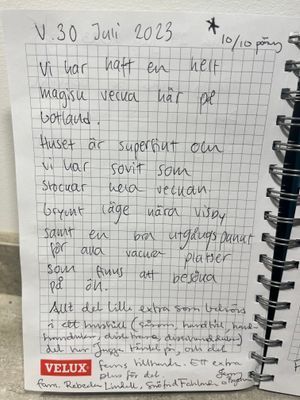 V.30 Juli 2023
* 10/10 poäng
Vi har haft en helt
magisk vecka här på
Gotland.
Huset är superfint och
vi har sovit som
stockar hela veckan.
Grymt läge nära Visby
samt en bra utgångspunkt
för alla vackra platser
som finns att besöka
på ön.
Allt det lilla extra som behövs
i ett hushåll (såsom, handtvål,
det har Jugge tänkt på, och det
VELUX
finns tillhands. Ett extra
plus för det
fam. Rebecka Lindell,